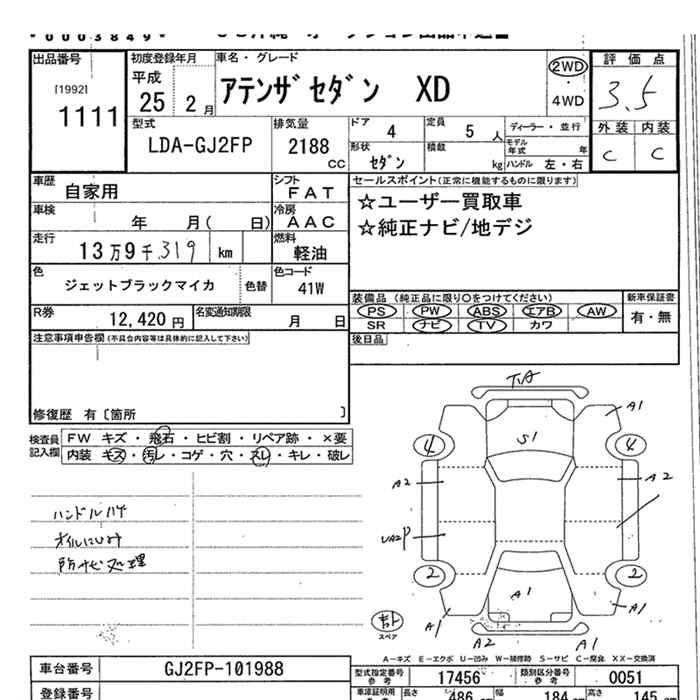 0003849
出品番号 初度登録年月 車名・グレード 評価点
[1992] 平成 アテンザセダン XD 2WD 3.5
1111 25 2月 ・4WD
型式 排気量 ドア 4 定員 5人 ディーラー・並行 外装 内装
LDA-GJ2FP 2188 cc 形状 セダン 積載 kg モデル年式 年 C C
ハンドル 左・右
車歴 自家用 シフト FAT セールスポイント(正常に機能するものに限ります)
車検 年 月( 日) 冷房 AAC ☆ユーザー買取車
走行 13万9千319 km 燃料 軽油 ☆純正ナビ/地デジ
色 ジェットブラックマイカ 色替 色コード 41W
R券 12,420円 名変通知期限 月 日
装備品 (純正品に限り○をつけてください) 新車保証書
PS PW ABS エアB AW 有・無
SR ナビ TV カワ
注意事項申告欄(不具合内容等は具体的に記入して下さい) 後日品
修復歴 有〔箇所 〕
検査員記入欄 FW キズ・飛石・ヒビ割・リペア跡・×要
内装 キズ・汚レ・コゲ・穴・スレ・キレ・破レ
ハンドル
オイルにじみ
防サビ処理
A1
S1
4 4
A2 A2
UA2P
2 2
A1
A1 A1
スペア A2 A1
A-キズ E-エクボ U-凹み W-補修跡 S-サビ C-腐食 XX-交換済
車台番号 GJ2FP-101988 型式指定番号 参考 17456 類別区分番号 参考 0051
登録番号 車検証明用 参考 長さ 486 幅 184 高さ 145